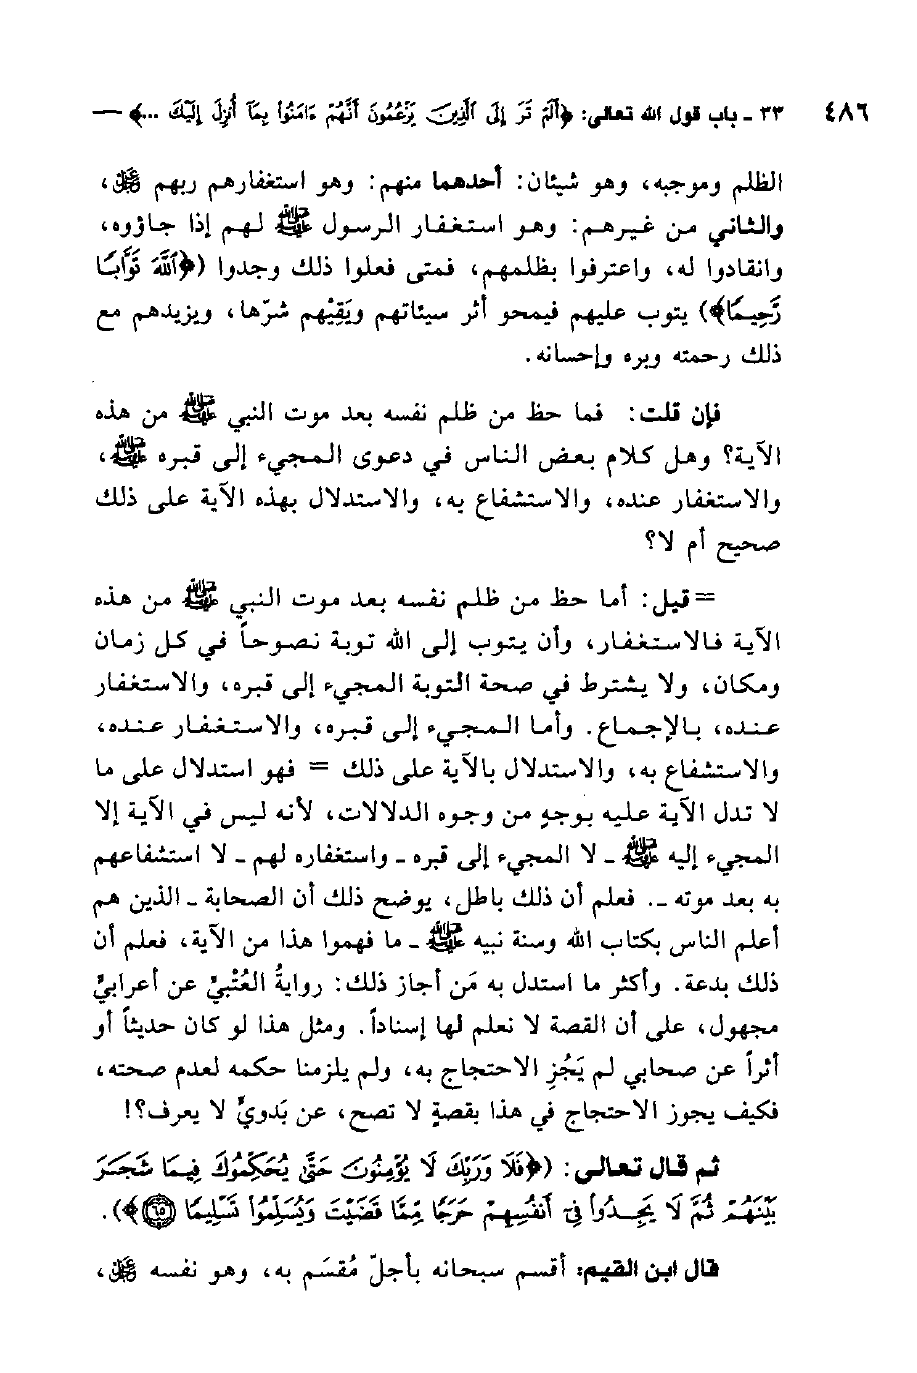 ٤٨٦ ٣٣ ـ باب قول الله تعالى: ﴿أَلَمْ تَرَ إِلَى ٱلَّذِينَ يَزْعُمُونَ أَنَّهُمْ ءَامَنُوا۟ بِمَآ أُنزِلَ إِلَيْكَ ...﴾ —
الظلم وموجبه، وهو شيئان: أحدهما منهم: وهو استغفارهم ربهم ﷺ،
والثاني من غيرهم: وهو استغفار الرسول ﷺ لهم إذا جاؤوه،
وانقادوا له، واعترفوا بظلمهم، فمتى فعلوا ذلك وجدوا (﴿ٱللَّهَ تَوَّابًا
رَّحِيمًا﴾) يتوب عليهم فيمحو أثر سيئاتهم ويَقِيْهم شرّها، ويزيدهم مع
ذلك رحمته وبره وإحسانه.
فإن قلت: فما حظ من ظلم نفسه بعد موت النبي ﷺ من هذه
الآية؟ وهل كلام بعض الناس في دعوى المجيء إلى قبره ﷺ،
والاستغفار عنده، والاستشفاع به، والاستدلال بهذه الآية على ذلك
صحيح أم لا؟
=قيل: أما حظ من ظلم نفسه بعد موت النبي ﷺ من هذه
الآية فالاستغفار، وأن يتوب إلى الله توبة نصوحاً في كل زمان
ومكان، ولا يشترط في صحة التوبة المجيء إلى قبره، والاستغفار
عنده، بالإجماع. وأما المجيء إلى قبره، والاستغفار عنده،
والاستشفاع به، والاستدلال بالآية على ذلك = فهو استدلال على ما
لا تدل الآية عليه بوجهٍ من وجوه الدلالات، لأنه ليس في الآية إلا
المجيء إليه ﷺ ـ لا المجيء إلى قبره ـ واستغفاره لهم ـ لا استشفاعهم
به بعد موته ـ. فعلم أن ذلك باطل، يوضح ذلك أن الصحابة ـ الذين هم
أعلم الناس بكتاب الله وسنة نبيه ﷺ ـ ما فهموا هذا من الآية، فعلم أن
ذلك بدعة. وأكثر ما استدل به مَن أجاز ذلك: روايةُ العُتْبيِّ عن أعرابيٍّ
مجهول، على أن القصة لا نعلم لها إسناداً. ومثل هذا لو كان حديثاً أو
أثراً عن صحابي لم يَجُزِ الاحتجاج به، ولم يلزمنا حكمه لعدم صحته،
فكيف يجوز الاحتجاج في هذا بقصةٍ لا تصح، عن بَدويٍّ لا يعرف؟!
ثم قال تعالى: (﴿فَلَا وَرَبِّكَ لَا يُؤْمِنُونَ حَتَّىٰ يُحَكِّمُوكَ فِيمَا شَجَرَ
بَيْنَهُمْ ثُمَّ لَا يَجِدُوا۟ فِىٓ أَنفُسِهِمْ حَرَجًا مِّمَّا قَضَيْتَ وَيُسَلِّمُوا۟ تَسْلِيمًا ٦٥﴾).
قال ابن القيم: أقسم سبحانه بأجلّ مُقسَم به، وهو نفسه ﷺ،